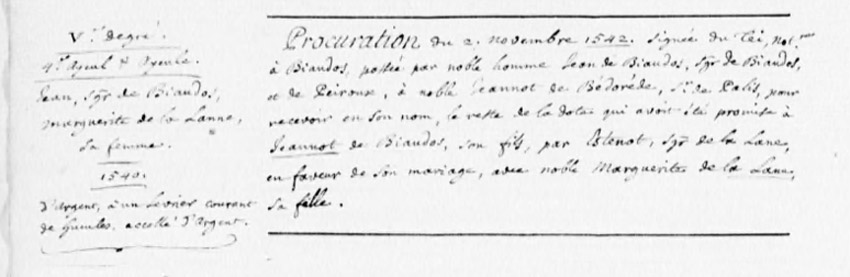 V.e degré.
4.e Ayeul & Ayeule.
Jean, sgr de Biaudos,
marguerite de la Lanne,
sa femme.
1540.
D'argent, à un Levrier courant
de Gueules, accollé d'Argent.
Procuration du 2. novembre 1542. signée du Tei, Not.re
à Biaudos, passée par noble homme Jean de Biaudos, sgr de Biaudos,
et de Peiroux, à noble Jeannot de Bédorède, sr. de Palis, pour
recevoir en son nom, le reste de la dote qui avoit été promise à
Jeannot de Biaudos, son fils, par Estenot, sgr de la Lane,
en faveur de son mariage, avec noble Marguerite de la Lane,
sa fille.